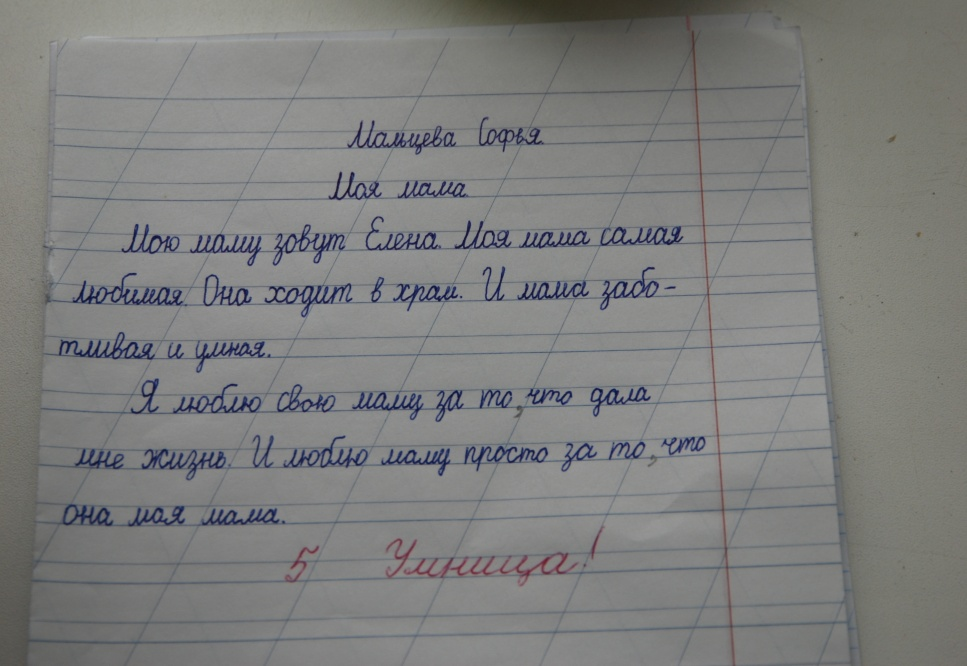 Мальцева Софья.
Моя мама.
Мою маму зовут Елена. Моя мама самая
любимая. Она ходит в храм. И мама забо-
тливая и умная.
Я люблю свою маму за то, что дала
мне жизнь. И люблю маму просто за то, что
она моя мама.
5 Умница!